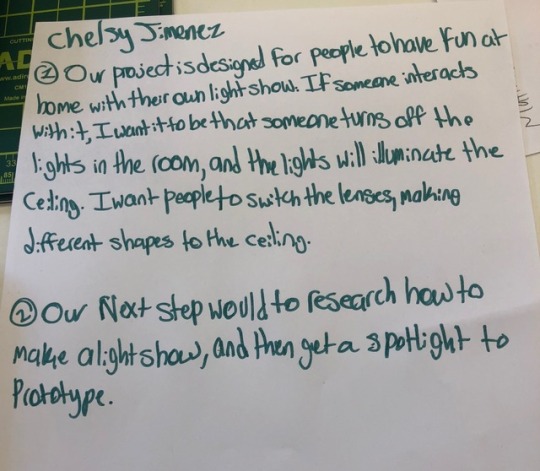 Chelsy Jimenez
① Our project is designed for people to have fun at
home with their own light show. If someone interacts
with it, I want it to be that someone turns off the
lights in the room, and the lights will illuminate the
Ceiling. I want people to switch the lenses, making
different shapes to the ceiling.
② Our Next step would to research how to
make a light show, and then get a spotlight to
Prototype.